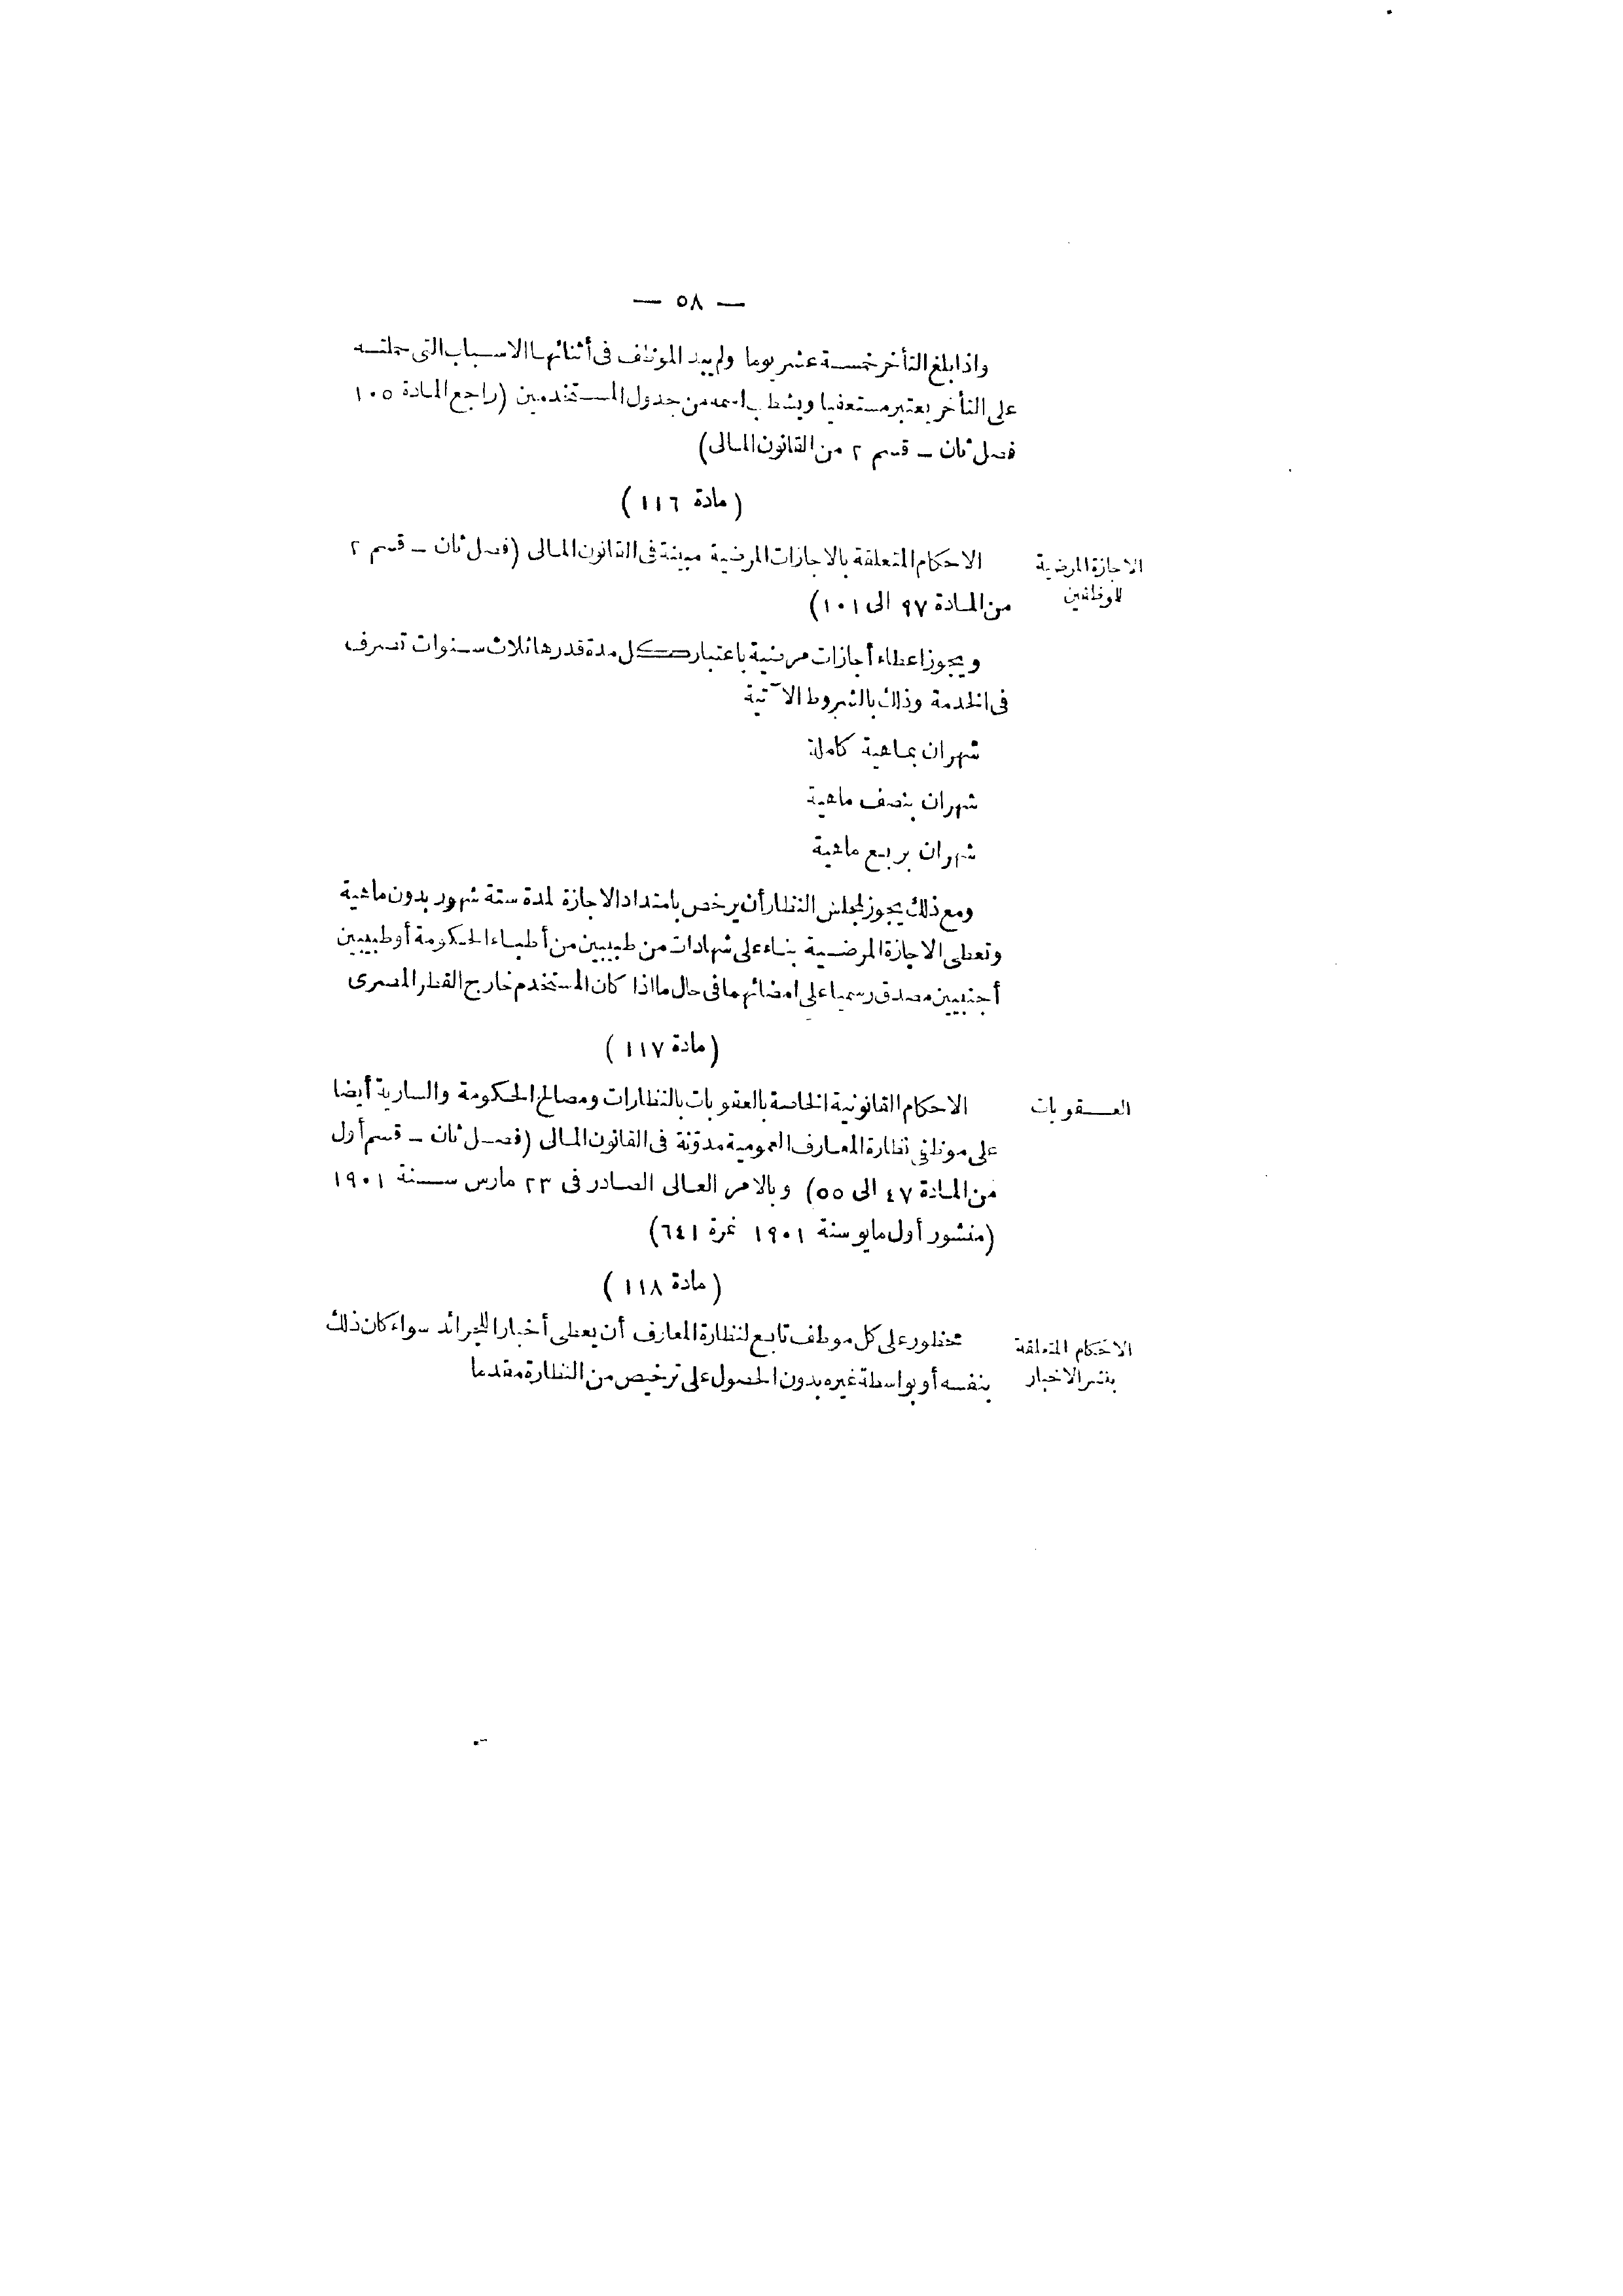 — ٥٨ —
واذا بلغ التأخر خمسة عشر يوما ولم يبد الموظف فى أثنائها الاسباب التى حملته
على التأخر يعتبر مستعفيا ويشطب اسمه من جدول المستخدمين (راجع المادة ١٠٥
فصل ثان – قسم ٢ من القانون المالى)
(مادة ١١٦)
الاجازة المرضية
للموظفين
الاحكام المتعلقة بالاجازات المرضية مبينة فى القانون المالى (فصل ثان – قسم ٢
من المادة ٩٧ الى ١٠١)
ويجوز اعطاء أجازات مرضية باعتبار كل مدة قدرها ثلاث سنوات تصرف
فى الخدمة وذلك بالشروط الآتية
شهران بماهية كاملة
شهران بنصف ماهية
شهران بربع ماهية
ومع ذلك يجوز لمجلس النظار أن يرخص بامتداد الاجازة لمدة ستة شهور بدون ماهية
وتعطى الاجازة المرضية بناء على شهادات من طبيبين من أطباء الحكومة أو طبيبين
أجنبيين مصدق رسميا على امضائهما فى حال ما اذا كان المستخدم خارج القطر المصرى
(مادة ١١٧)
العقوبات
الاحكام القانونية الخاصة بالعقوبات بالنظارات ومصالح الحكومة والسارية أيضا
على موظفى نظارة المعارف العمومية مدونة فى القانون المالى (فصل ثان – قسم أول
من المادة ٤٧ الى ٥٥) وبالامر العالى الصادر فى ٢٣ مارس سنة ١٩٠١
(منشور أول مايو سنة ١٩٠١ نمرة ٦٤١)
(مادة ١١٨)
الاحكام المتعلقة
بنشر الاخبار
محظور على كل موظف تابع لنظارة المعارف أن يعطى أخبارا للجرائد سواء كان ذلك
بنفسه أو بواسطة غيره بدون الحصول على ترخيص من النظارة مقدما